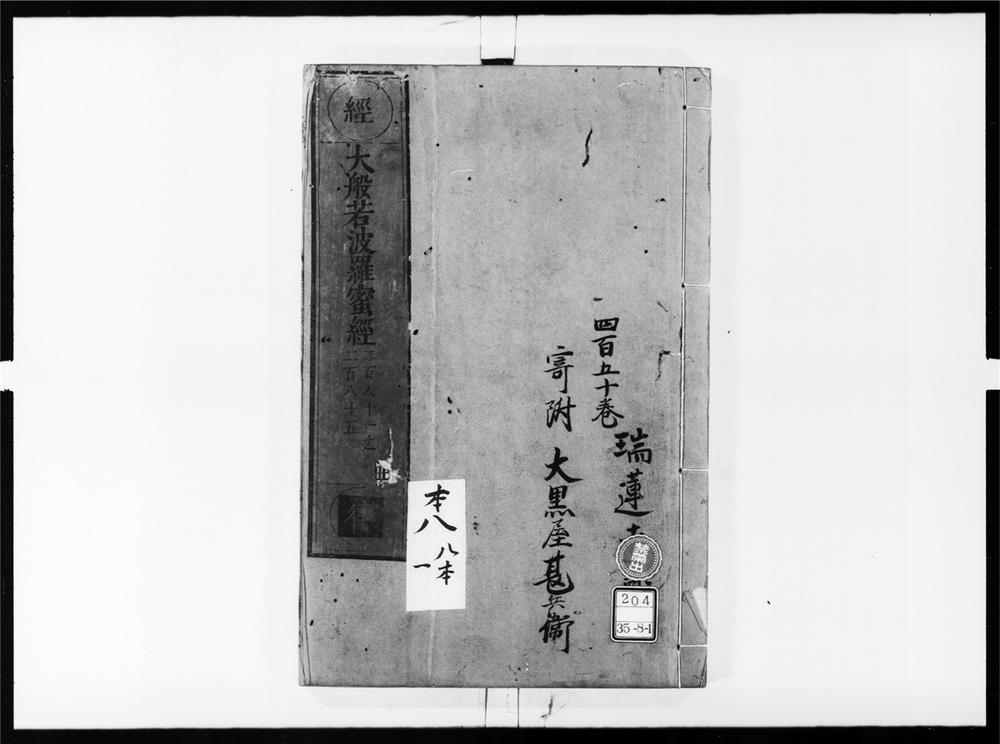 瑞蓮
四百五十巻
寄附 大黒屋甚兵衛
禁出
204
35-8-1
本八
八本
一
經
大般若波羅蜜經
二百八十一之
二百八十五